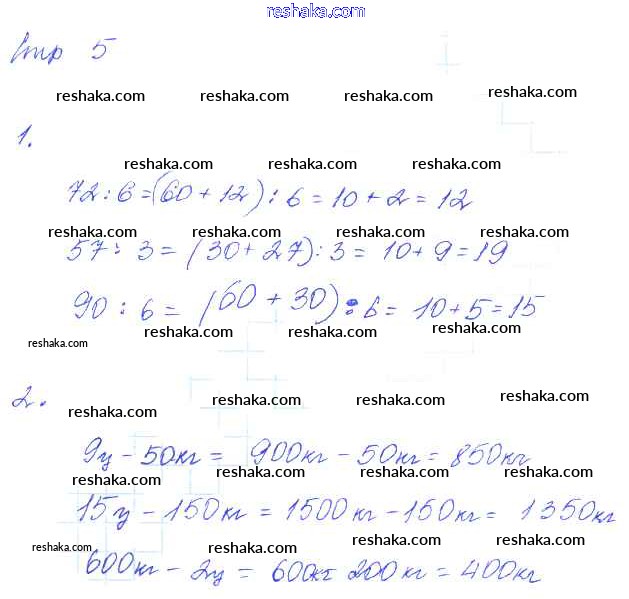 reshaka.com
Стр 5
reshaka.com reshaka.com reshaka.com reshaka.com
1.
reshaka.com reshaka.com reshaka.com
72 : 6 = (60 + 12) : 6 = 10 + 2 = 12
reshaka.com reshaka.com reshaka.com reshaka.com
57 : 3 = (30 + 27) : 3 = 10 + 9 = 19
90 : 6 = (60 + 30) : 6 = 10 + 5 = 15
reshaka.com reshaka.com reshaka.com reshaka.com
2.
reshaka.com reshaka.com reshaka.com reshaka.com
9ц - 50кг = 900кг - 50кг = 850кг
reshaka.com reshaka.com reshaka.com reshaka.com
15ц - 150кг = 1500кг - 150кг = 1350кг
reshaka.com reshaka.com reshaka.com reshaka.com
600кг - 2ц = 600кг 200кг = 400кг